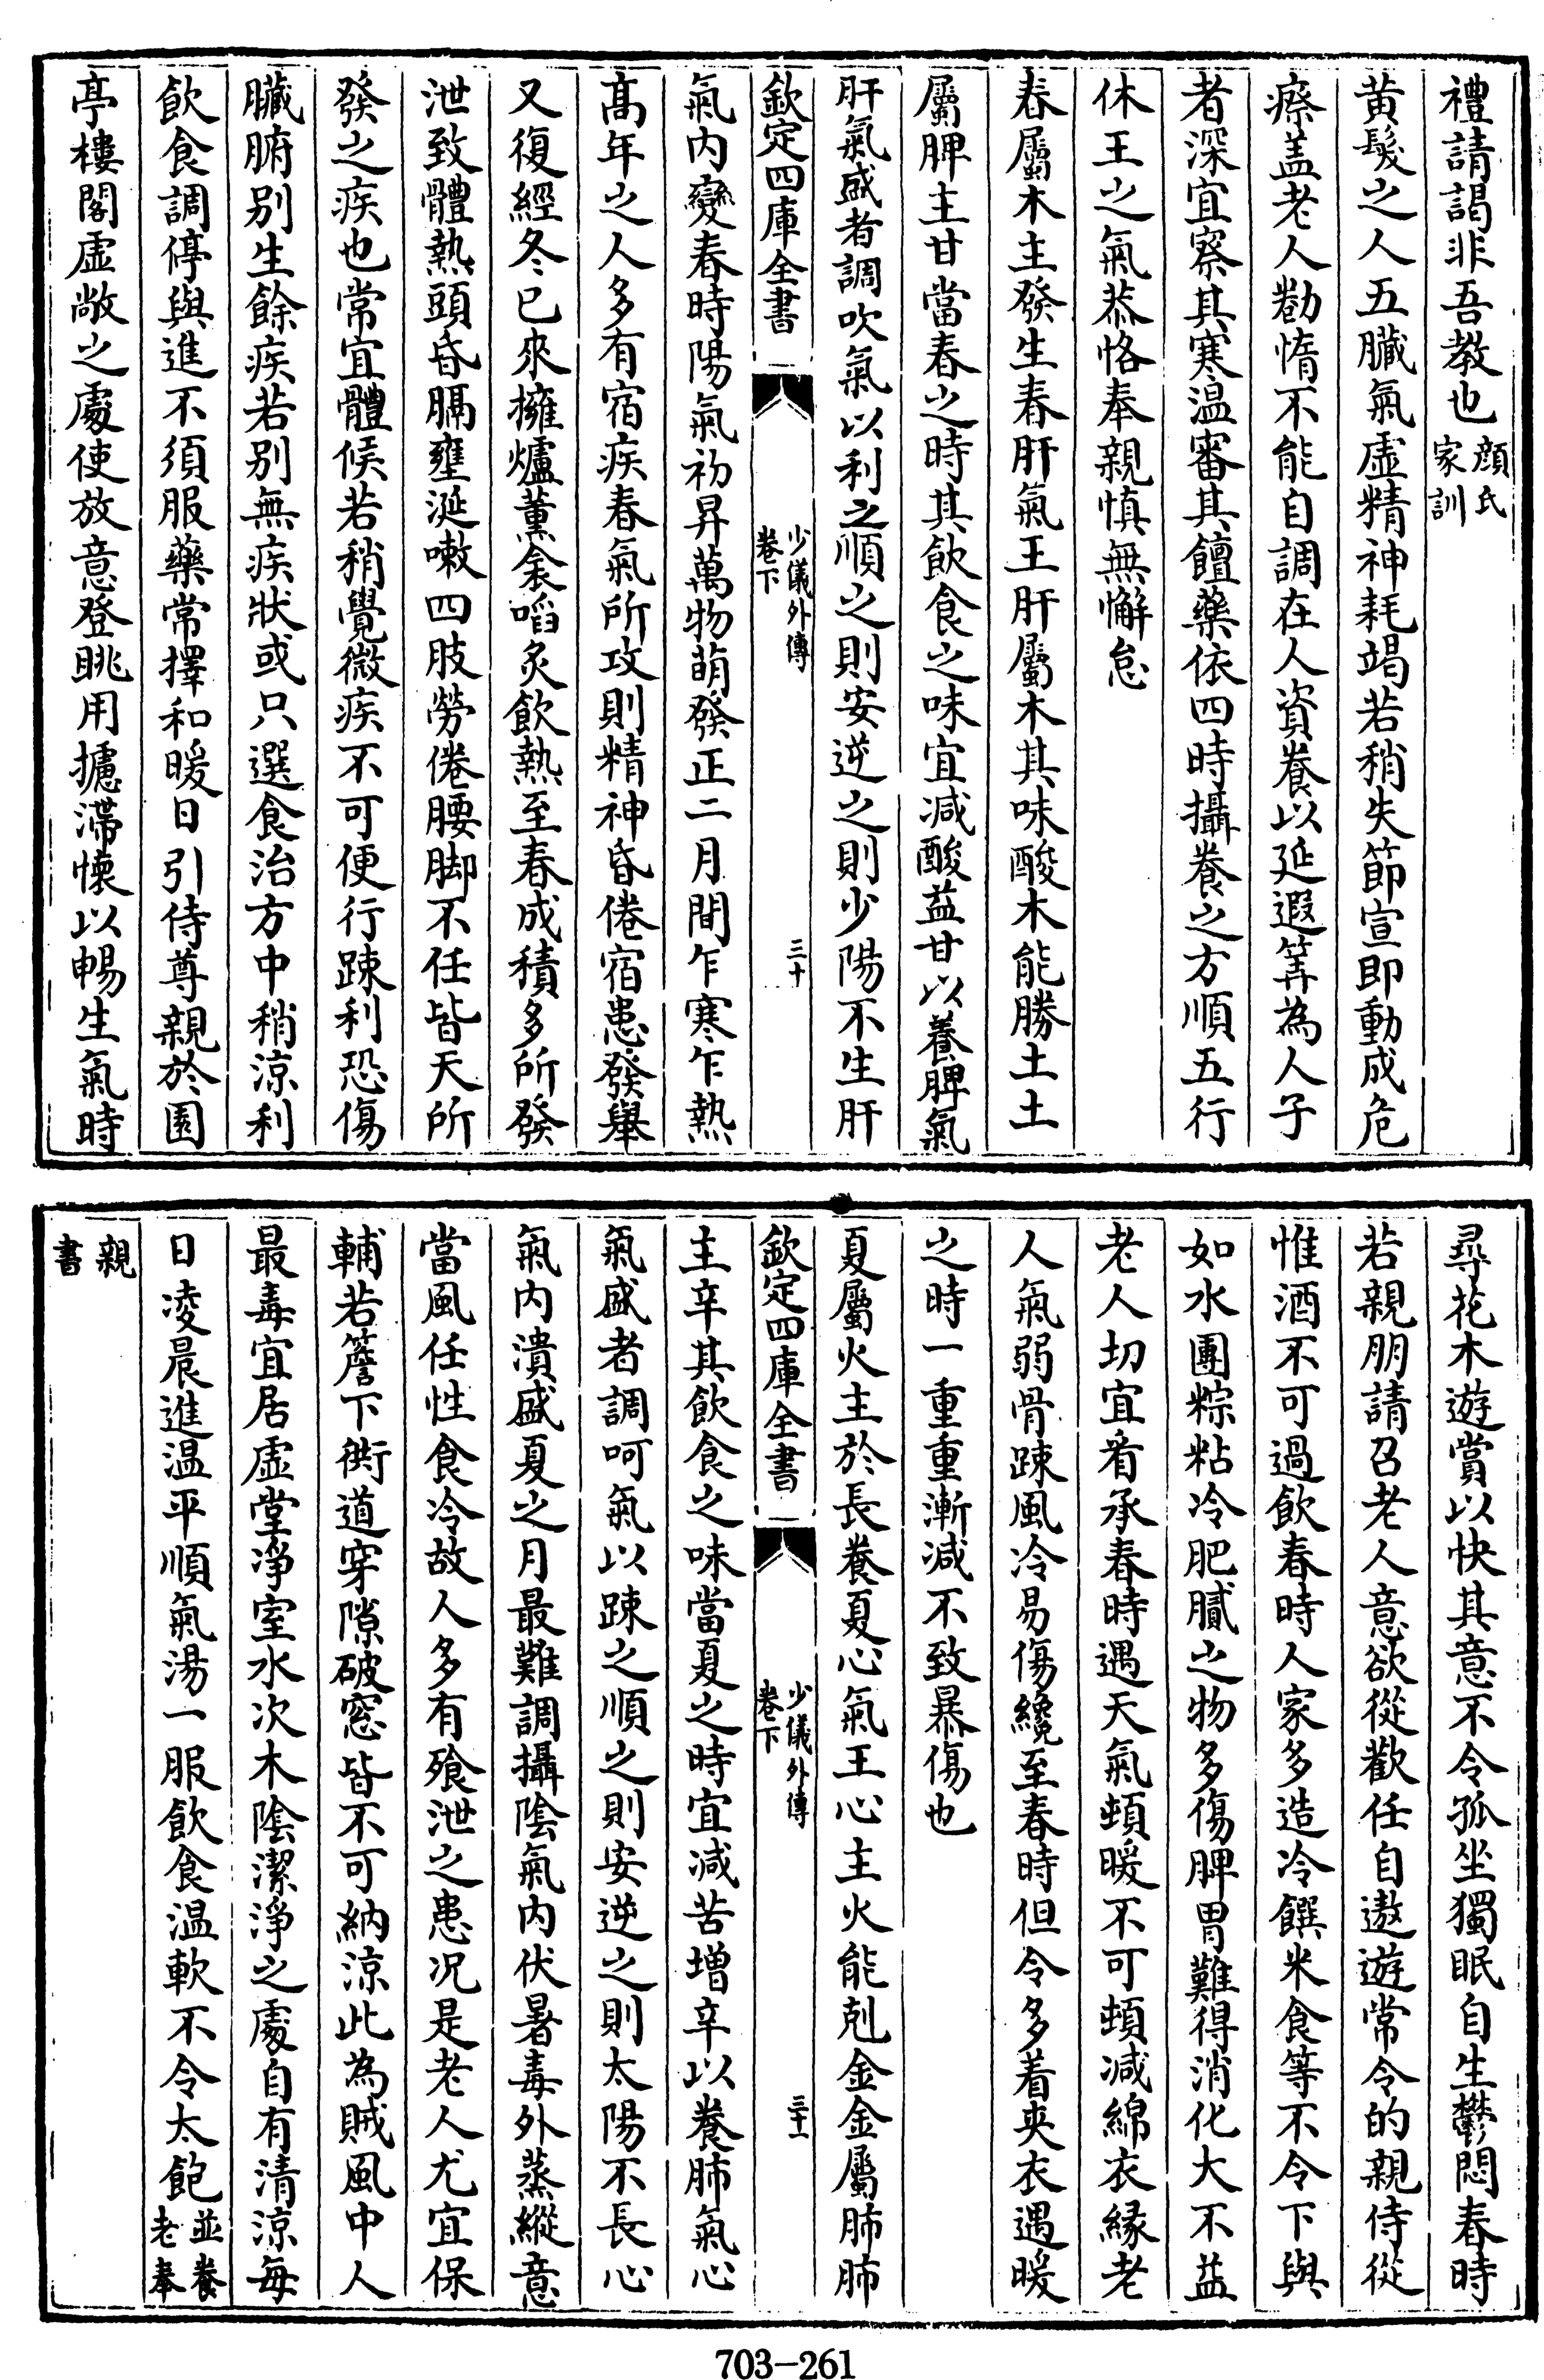 禮請謁非吾教也顔氏家訓
黄髮之人五臟氣虛精神耗竭若稍失節宣即動成危
瘵盖老人勌惰不能自調在人資養以延遐筭為人子
者深宜察其寒温審其饘藥依四時攝養之方順五行
休王之氣恭恪奉親慎無懈怠
春屬木主發生春肝氣王肝屬木其味酸木能勝土土
屬脾主甘當春之時其飲食之味宜減酸益甘以養脾氣
肝氣盛者調吹氣以利之順之則安逆之則少陽不生肝
欽定四庫全書
少儀外傳
卷下
三十
氣内變春時陽氣初昇萬物萌發正二月間乍寒乍熱
髙年之人多有宿疾春氣所攻則精神昏倦宿患發舉
又復經冬已來擁爐薰衾啗炙飲熱至春成積多所發
泄致體熱頭昏膈壅涎嗽四肢勞倦腰脚不任皆天所
發之疾也常宜體候若稍覺微疾不可便行踈利恐傷
臟腑别生餘疾若别無疾狀或只選食治方中稍涼利
飲食調停與進不須服藥常擇和暖日引侍尊親於園
亭樓閣虛敞之處使放意登眺用攄滯懷以暢生氣時
尋花木遊賞以快其意不令孤坐獨眠自生鬱悶春時
若親朋請召老人意欲從歡任自遨遊常令的親侍從
惟酒不可過飲春時人家多造冷饌米食等不令下與
如水團粽粘冷肥膩之物多傷脾胃難得消化大不益
老人切宜看承春時遇天氣頓暖不可頓減綿衣縁老
人氣弱骨踈風冷易傷纔至春時但令多着夾衣遇暖
之時一重重漸減不致暴傷也
夏屬火主於長養夏心氣王心主火能剋金金屬肺肺
欽定四庫全書
少儀外傳
卷下
三十一
主辛其飲食之味當夏之時宜減苦增辛以養肺氣心
氣盛者調呵氣以踈之順之則安逆之則太陽不長心
氣内潰盛夏之月最難調攝陰氣内伏暑毒外蒸縱意
當風任性食冷故人多有飱泄之患况是老人尤宜保
輔若簷下衖道穿隙破窓皆不可納涼此為賊風中人
最毒宜居虛堂凈室水次木陰潔淨之處自有清涼每
日凌晨進温平順氣湯一服飲食温軟不令太飽並養老奉
親書
703-261